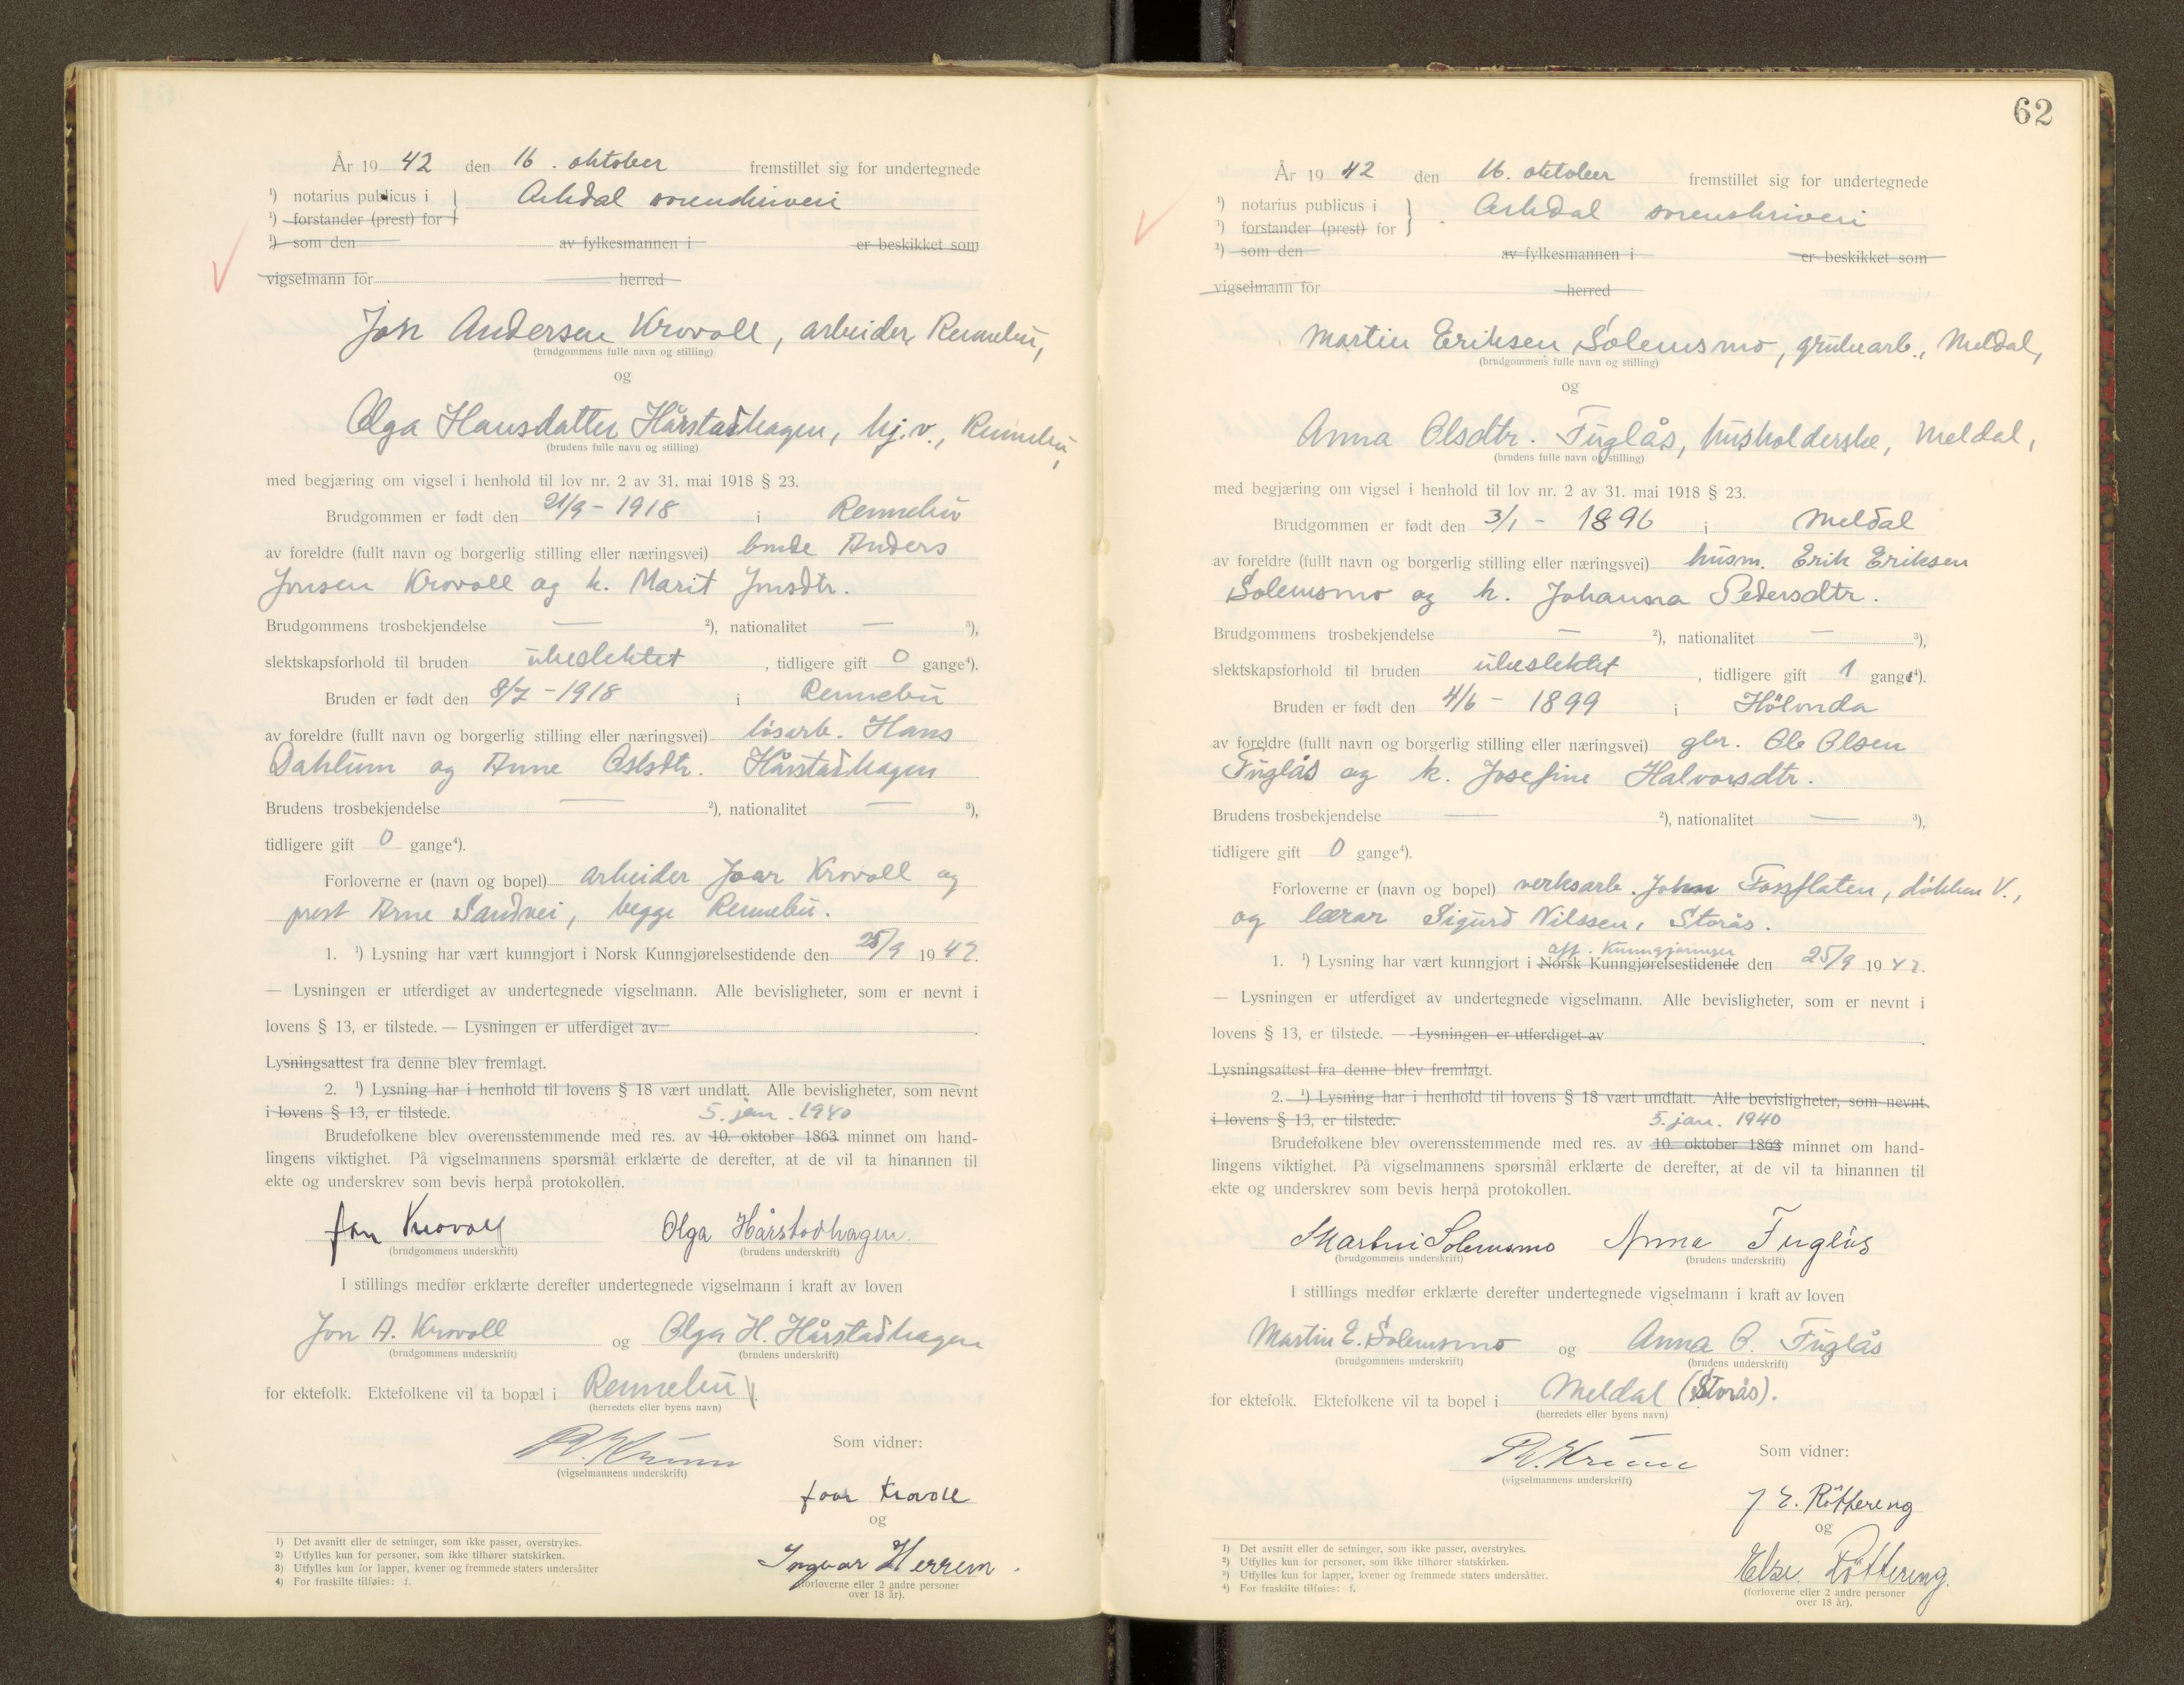 År 1942 den 16. oktober fremstillet sig for undertegnede
1) notarius publicus i } Orkdal sorenskriveri
1) forstander (prest) for
1) som den av fylkesmannen i er beskikket som
vigselmann for herred
Jon Andersen Krovoll, arbeider, Rennebu,
(brudgommens fulle navn og stilling)
og
Olga Hansdatter Hårstadhagen, hj.v., Rennebu,
(brudens fulle navn og stilling)
med begjæring om vigsel i henhold til lov nr. 2 av 31. mai 1918 § 23.
Brudgommen er født den 21/9 - 1918 i Rennebu
av foreldre (fullt navn og borgerlig stilling eller næringsvei) bonde Anders
Jonsen Krovoll og h. Marit Jonsdtr.
Brudgommens trosbekjendelse — 2), nationalitet — 3),
slektskapsforhold til bruden ubeslektet, tidligere gift 0 gange4).
Bruden er født den 8/7 - 1918 i Rennebu
av foreldre (fullt navn og borgerlig stilling eller næringsvei) løsarb. Hans
Dahlum og Anne Hårstadhagen
Brudens trosbekjendelse — 2), nationalitet — 3),
tidligere gift 0 gange4).
Forloverne er (navn og bopel) arbeider Joar Krovoll og
prest Arne Sandvei, begge Rennebu.
1. 1) Lysning har vært kunngjort i Norsk Kunngjørelsestidende den 25/9 1942.
— Lysningen er utferdiget av undertegnede vigselmann. Alle bevisligheter, som er nevnt i
lovens § 13, er tilstede. — Lysningen er utferdiget av
Lysningsattest fra denne blev fremlagt.
2. 1) Lysning har i henhold til lovens § 18 vært undlatt. Alle bevisligheter, som nevnt
i lovens § 13, er tilstede. 5. jan. 1940
Brudefolkene blev overensstemmende med res. av 10. oktober 1863 minnet om hand-
lingens viktighet. På vigselmannens spørsmål erklærte de derefter, at de vil ta hinannen til
ekte og underskrev som bevis herpå protokollen.
Jon Krovoll Olga Hårstadhagen.
(brudgommens underskrift) (brudens underskrift)
I stillings medfør erklærte derefter undertegnede vigselmann i kraft av loven
Jon A. Krovoll og Olga H. Hårstadhagen
(brudgommens underskrift) (brudens underskrift)
for ektefolk. Ektefolkene vil ta bopæl i Rennebu.
(herredets eller byens navn)
Som vidner:
(vigselmannens underskrift)
Joar Krovoll
og
Ingvar Herrem.
(forloverne eller 2 andre personer
over 18 år).
1) Det avsnitt eller de setninger, som ikke passer, overstrykes.
2) Utfylles kun for personer, som ikke tilhører statskirken.
3) Utfylles kun for lapper, kvener og fremmede staters undersåtter
4) For fraskilte tilføies: f.
62
År 1942 den 16. oktober fremstillet sig for undertegnede
1) notarius publicus i } Orkdal sorenskriveri
1) forstander (prest) for
1) som den av fylkesmannen i er beskikket som
vigselmann for herred
Martin Eriksen Solemsmo, grubearb., Meldal,
(brudgommens fulle navn og stilling)
og
Anna Olsdtr. Fuglås, husholderske, Meldal,
(brudens fulle navn og stilling)
med begjæring om vigsel i henhold til lov nr. 2 av 31. mai 1918 § 23.
Brudgommen er født den 3/1 - 1896 i Meldal
av foreldre (fullt navn og borgerlig stilling eller næringsvei) husm. Erik Eriksen
Solemsmo og h. Johanna Pedersdtr.
Brudgommens trosbekjendelse — 2), nationalitet — 3),
slektskapsforhold til bruden ubeslektet, tidligere gift 1 gang4).
Bruden er født den 4/6 - 1899 i Hölonda
av foreldre (fullt navn og borgerlig stilling eller næringsvei) gbr. Ole Olsen
Fuglås og h. Josefine Halvorsdtr.
Brudens trosbekjendelse — 2), nationalitet — 3),
tidligere gift 0 gange4).
Forloverne er (navn og bopel) verksarb. John Fossflaten, Løkken V.,
og lærer Sigurd Nilssen, Storås.
off. Kunngjøringer
1. 1) Lysning har vært kunngjort i Norsk Kunngjørelsestidende den 25/9 1942.
— Lysningen er utferdiget av undertegnede vigselmann. Alle bevisligheter, som er nevnt i
lovens § 13, er tilstede. — Lysningen er utferdiget av
Lysningsattest fra denne blev fremlagt.
2. 1) Lysning har i henhold til lovens § 18 vært undlatt. Alle bevisligheter, som nevnt
i lovens § 13, er tilstede. 5. jan. 1940
Brudefolkene blev overensstemmende med res. av 10. oktober 1863 minnet om hand-
lingens viktighet. På vigselmannens spørsmål erklærte de derefter, at de vil ta hinannen til
ekte og underskrev som bevis herpå protokollen.
Martin Solemsmo Anna Fuglås
(brudgommens underskrift) (brudens underskrift)
I stillings medfør erklærte derefter undertegnede vigselmann i kraft av loven
Martin E. Solemsmo og Anna O. Fuglås
(brudgommens underskrift) (brudens underskrift)
for ektefolk. Ektefolkene vil ta bopel i Meldal (Storås).
(herredets eller byens navn)
Som vidner:
(vigselmannens underskrift)
J E. Röttereng
og
Else Röttereng.
(forloverne eller 2 andre personer
over 18 år).
1) Det avsnitt eller de setninger, som ikke passer, overstrykes.
2) Utfylles kun for personer, som ikke tilhører statskirken.
3) Utfylles kun for lapper, kvener og fremmede staters undersåtter.
4) For fraskilte tilføies: f.